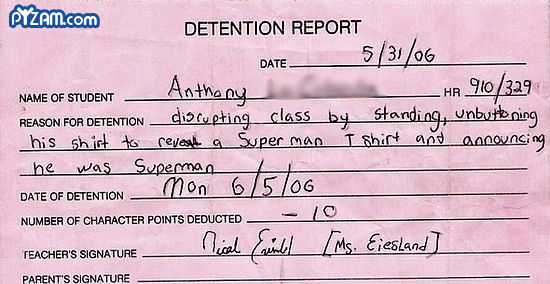 PYZAM.com
DETENTION REPORT
DATE 5/31/06
NAME OF STUDENT Anthony HR 910/329
REASON FOR DETENTION disrupting class by standing, unbuttoning
his shirt to reveal a Superman T shirt and announcing
he was Superman
DATE OF DETENTION Mon 6/5/06
NUMBER OF CHARACTER POINTS DEDUCTED -10
TEACHER'S SIGNATURE [Ms. Eiesland]
PARENT'S SIGNATURE